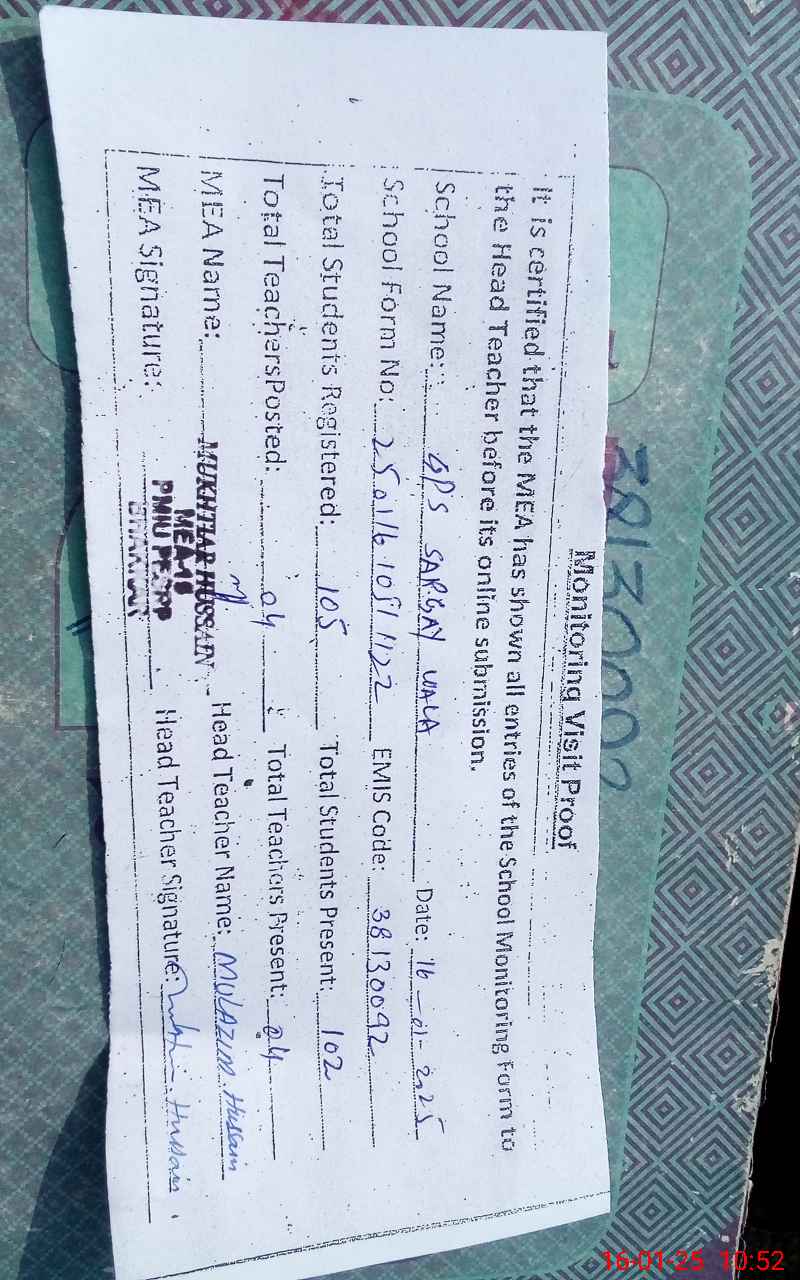 38130092
Monitoring Visit Proof
It is certified that the MEA has shown all entries of the School Monitoring Form to
the Head Teacher before its online submission.
School Name: GPS SARGAY WALA Date: 16-01-2025
School Form No: EMIS Code: 38130092
Total Students Registered: 105 Total Students Present: 102
Total Teachers Posted: 04 Total Teachers Present: 04
MEA Name: MUKHTIAR HUSSAIN Head Teacher Name: MULAZIM Hussain
MEA Signature: Head Teacher Signature: Hussain
MEA-18
BHAKKAR
16-01-25 10:52